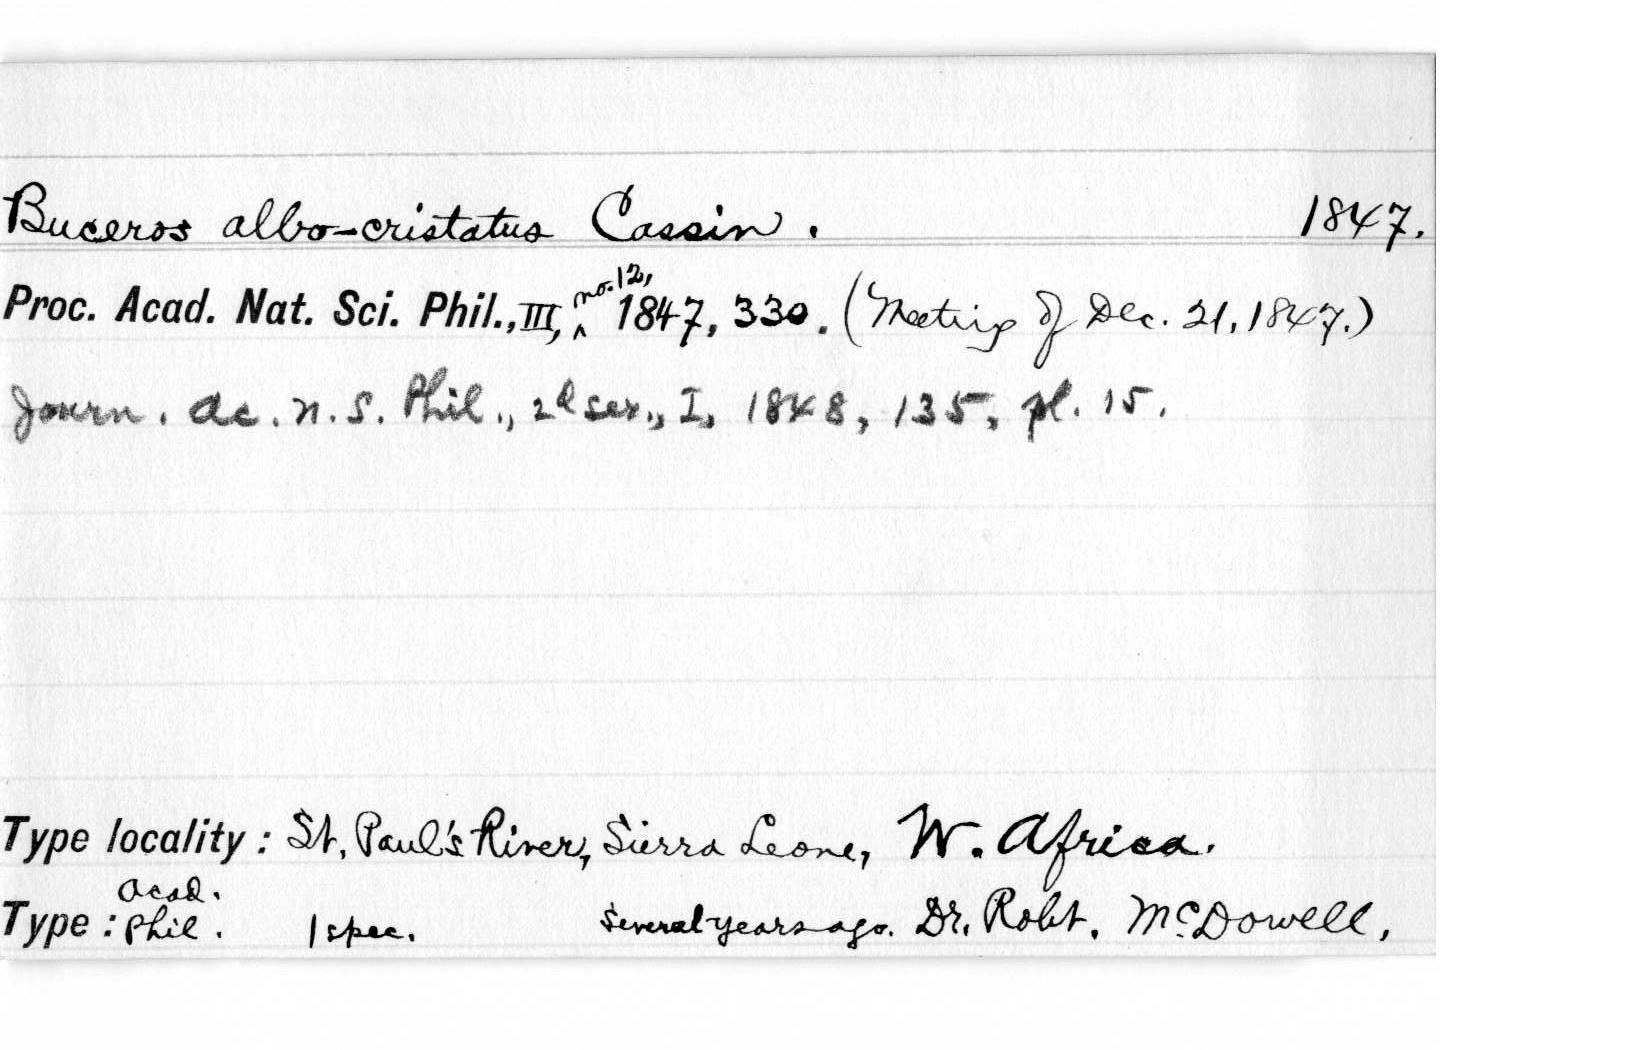 Buceros albo-cristatus Cassin. 1847.
Proc. Acad. Nat. Sci. Phil., III, no. 12, 1847, 330. (Meeting of Dec. 21, 1847.)
Journ. Ac. N. S. Phil., 2d ser., I, 1848, 135, pl. 15.
Type locality: St. Paul's River, Sierra Leone, W. Africa.
Type: Acad. Phil. 1 spec. Several years ago. Dr. Robt. McDowell,